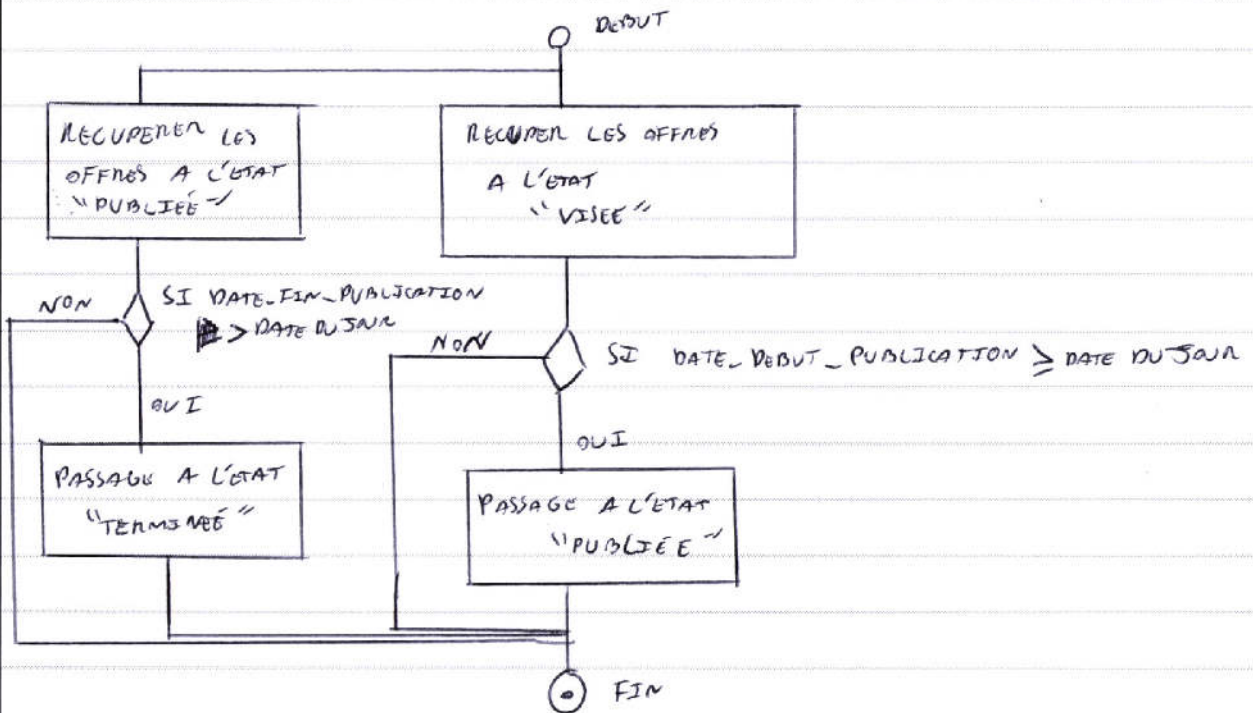 DEBUT
RECUPERER LES
OFFRES A L'ETAT
"PUBLIÉE"
RECUPER LES OFFRES
A L'ETAT
"VISEE"
NON
SI DATE_FIN_PUBLICATION
> DATE DU JOUR
NON
SI DATE_DEBUT_PUBLICATION ≥ DATE DU JOUR
OUI
OUI
PASSAGE A L'ETAT
"TERMINEÉ"
PASSAGE A L'ETAT
"PUBLIÉE"
FIN